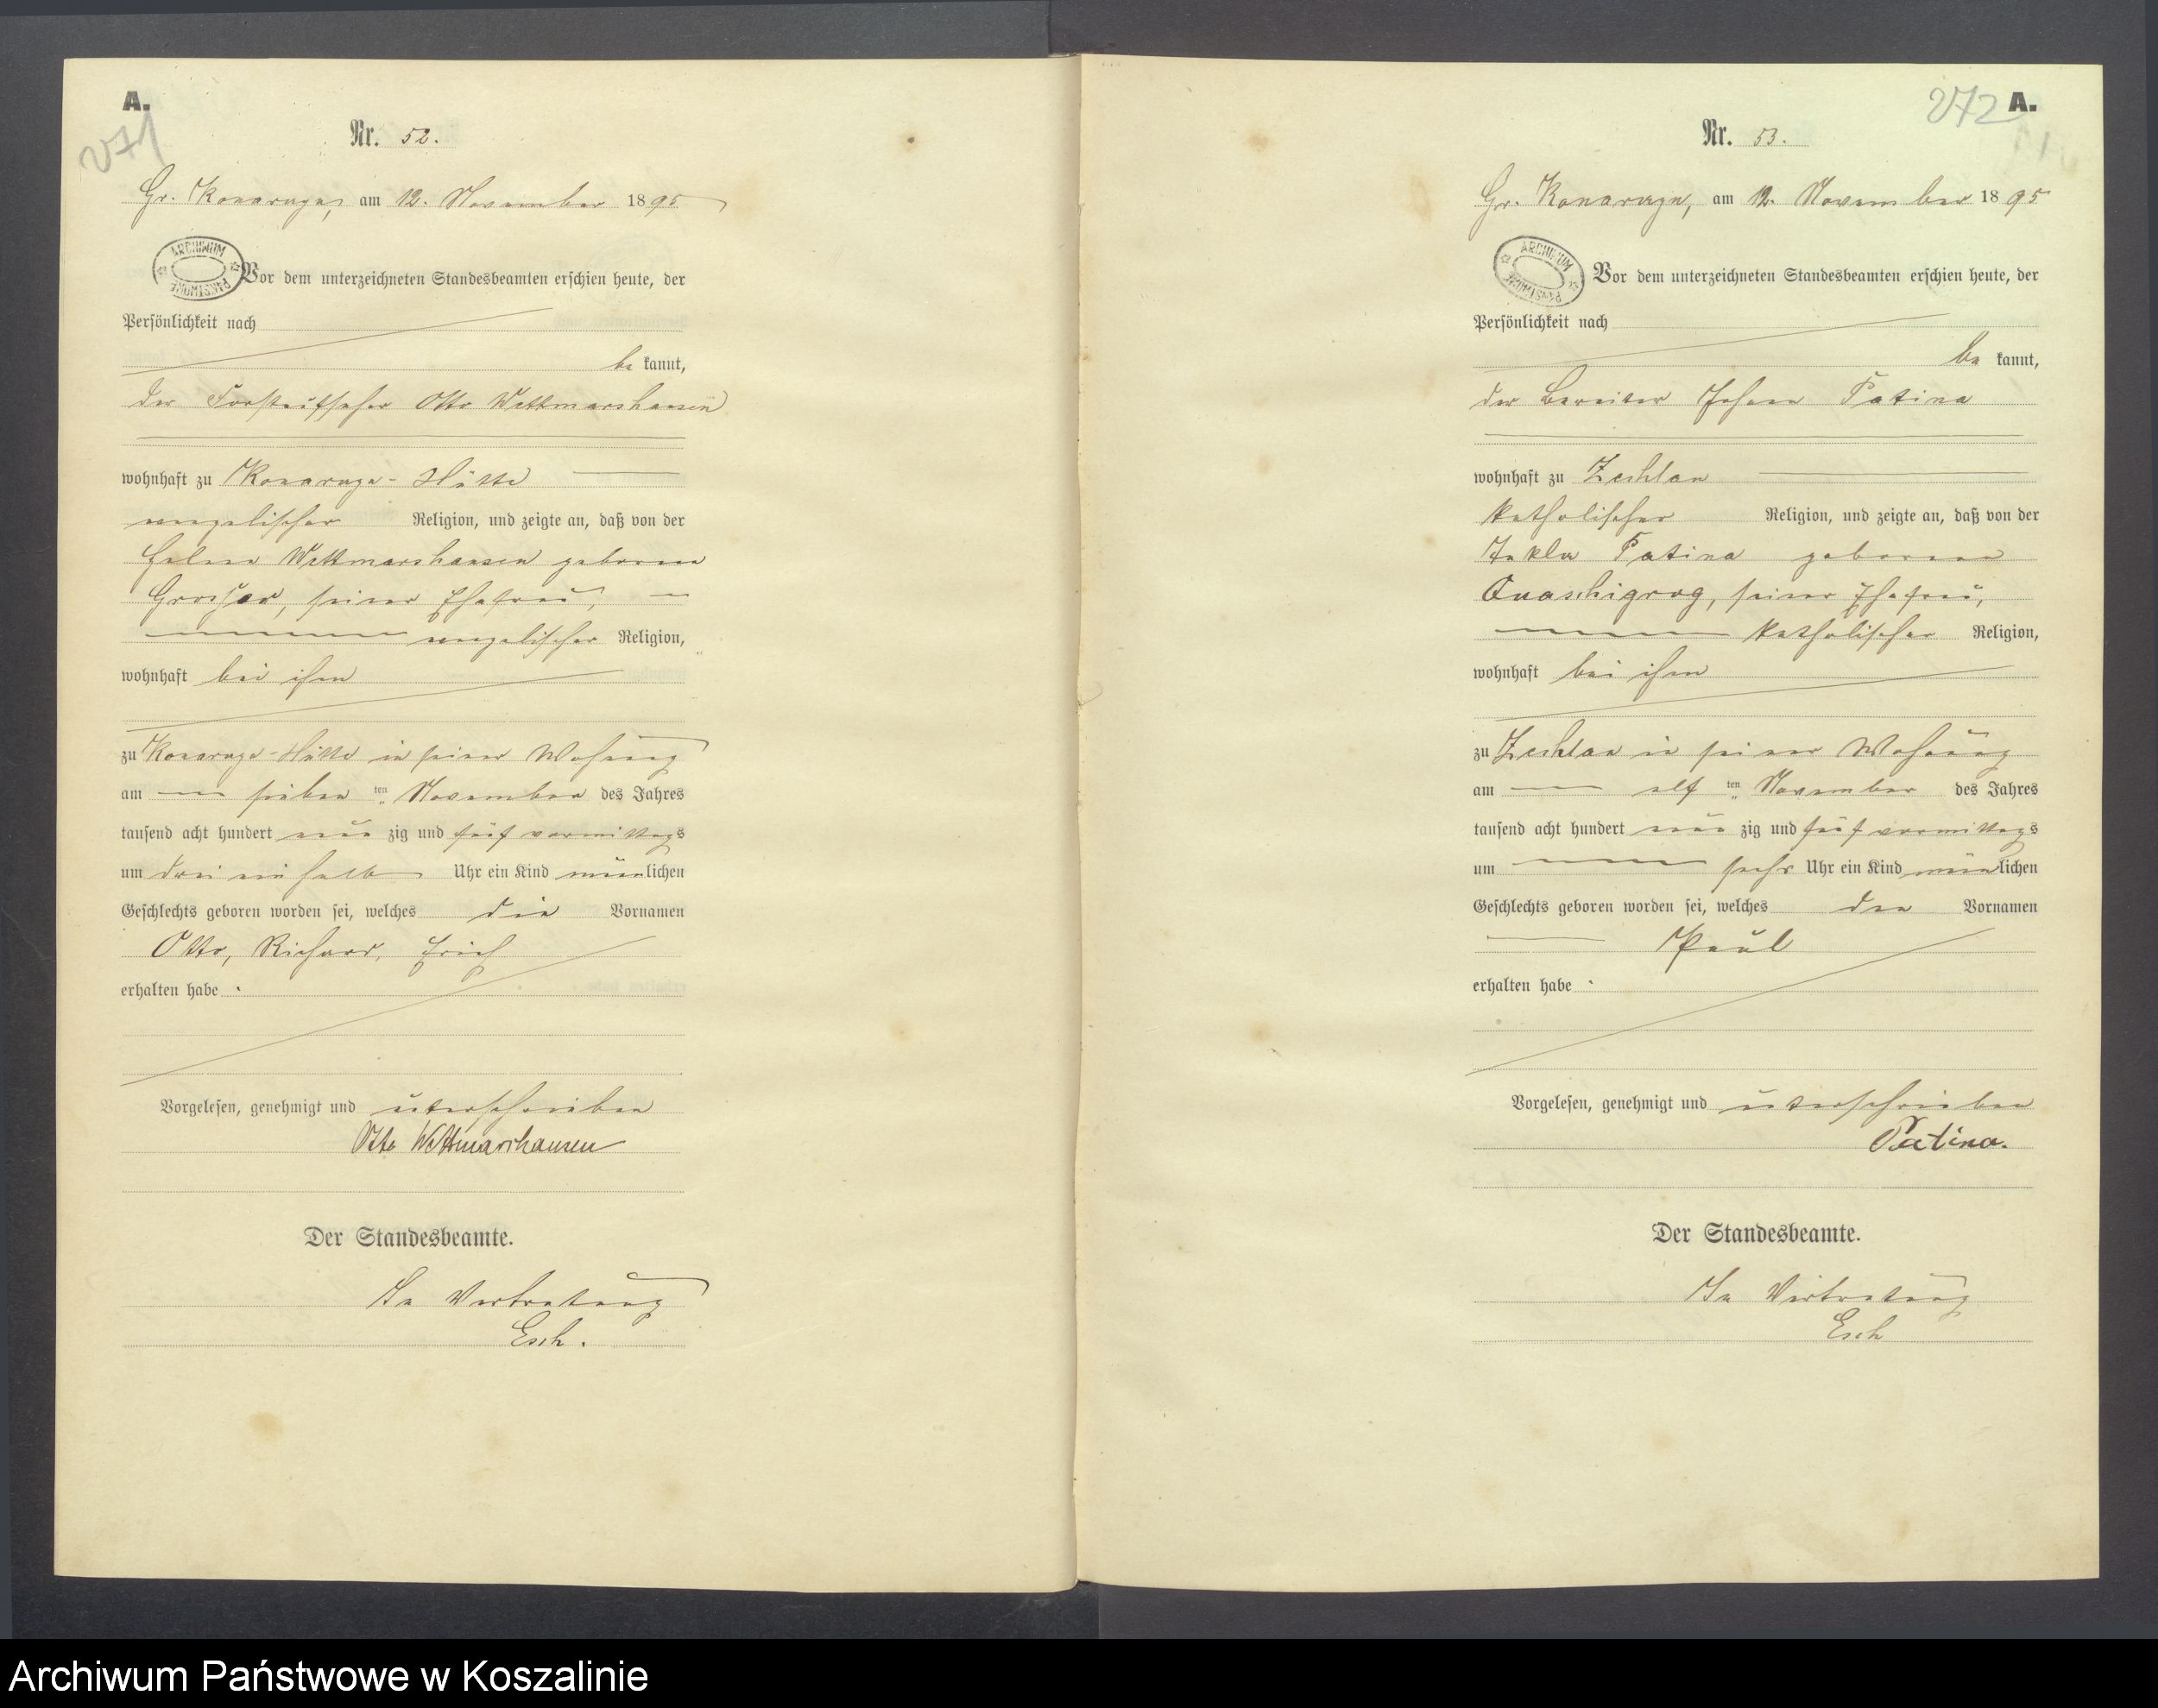 A.
271
Nr. 52.
Gr. Konarzyn, am 12. November 1895
ARCHIWUM PAŃSTWOWE
Vor dem unterzeichneten Standesbeamten erschien heute, der
Persönlichkeit nach
be kannt,
der Forstaufseher Otto Wittmarshausen
wohnhaft zu Konarzyn-Hütte
evangelischer Religion, und zeigte an, daß von der
Helene Wittmarshausen geborene
seiner Ehefrau,
evangelischer Religion,
wohnhaft bei ihm
zu Konarzyn-Hütte in seiner Wohnung
am sieben ten November des Jahres
tausend acht hundert neun zig und fünf vormittags
um drei ein halb Uhr ein Kind männlichen
Geschlechts geboren worden sei, welches die Vornamen
Otto, Richard, Erich
erhalten habe.
Vorgelesen, genehmigt und unterschrieben
Otto Wittmarshausen
Der Standesbeamte.
In Vertretung
Esch.
272 A.
Nr. 53.
Gr. Konarzyn, am 12. November 1895
ARCHIWUM PAŃSTWOWE
Vor dem unterzeichneten Standesbeamten erschien heute, der
Persönlichkeit nach
be kannt,
der Bereiter Johann Patina
wohnhaft zu Zechlau
katholischer Religion, und zeigte an, daß von der
Tekla Patina geborene
Quaschigrog, seiner Ehefrau,
katholischer Religion,
wohnhaft bei ihm
zu Zechlau in seiner Wohnung
am elf ten November des Jahres
tausend acht hundert neun zig und fünf vormittags
um sechs Uhr ein Kind männlichen
Geschlechts geboren worden sei, welches den Vornamen
Paul
erhalten habe.
Vorgelesen, genehmigt und unterschrieben
Patina.
Der Standesbeamte.
In Vertretung
Esch
Archiwum Państwowe w Koszalinie